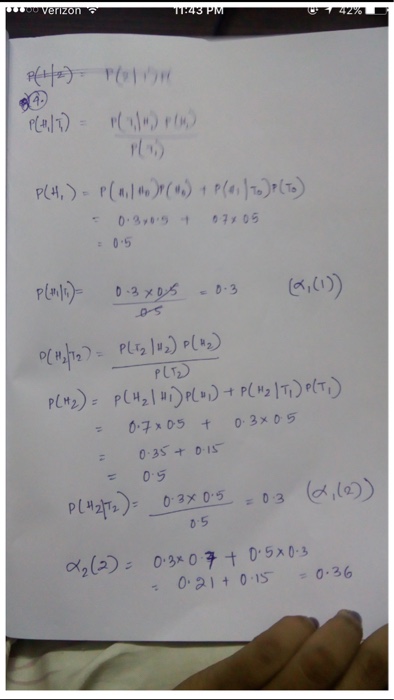 Verizon 11:43 PM 42%
P(1|2) =
4.
P(H₁|T₁) = P(T₁|H₁) P(H₁)
P(T₁)
P(H₁) = P(H₁|H₀)P(H₀) + P(H₁|T₀)P(T₀)
= 0.3×0.5 + 0.7×0.5
= 0.5
P(H₁|T₁) = 0.3×0.5 = 0.3 (α₁(1))
0.5
P(H₂|T₂) = P(T₂|H₂) P(H₂)
P(T₂)
P(H₂) = P(H₂|H1)P(H1) + P(H₂|T₁)P(T₁)
= 0.7×0.5 + 0.3×0.5
= 0.35 + 0.15
= 0.5
P(H₂|T₂) = 0.3×0.5 = 0.3 (α₁(2))
0.5
α₂(2) = 0.3×0.7 + 0.5×0.3
= 0.21 + 0.15 = 0.36